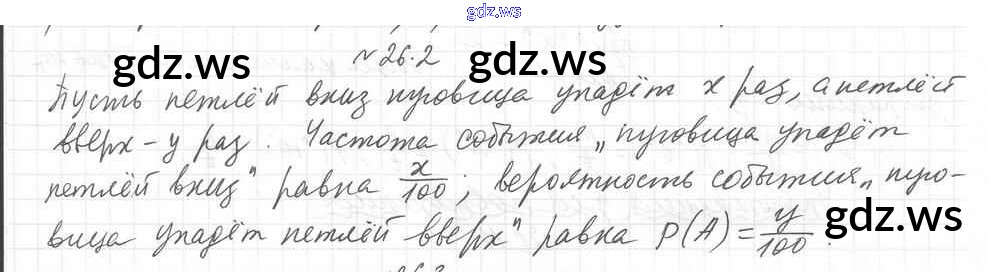 gdz.ws
№ 26.2
gdz.ws gdz.ws
Пусть петлёй вниз пуговица упадёт x раз, а петлёй
вверх – y раз. Частота события „пуговица упадёт
петлёй вниз" равна x/100; вероятность события „пуго-
gdz.ws
вица упадёт петлёй вверх" равна P(A) = y/100.